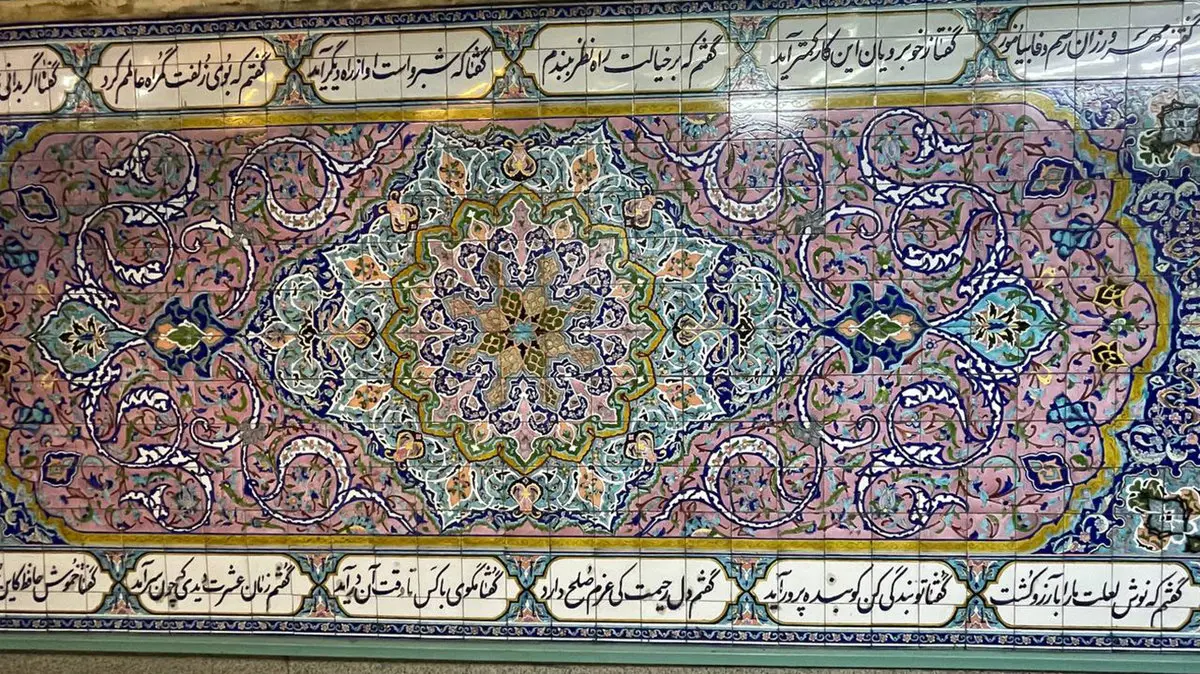 گفتم ز مهرورزان رسم وفا بیاموز
گفتا ز خوبرویان این کار کمتر آید
گفتم که بر خیالت راه نظر ببندم
گفتا که شبرو است او از راه دیگر آید
گفتم که بوی زلفت گمراه عالمم کرد
گفتا اگر بدانی
گفتم که نوش لعلت ما را بآرزو کشت
گفتا تو بندگی کن کو بنده پرور آید
گفتم دل رحیمت کی عزم صلح دارد
گفتا مگوی با کس تا وقت آن درآید
گفتم زمان عشرت دیدی که چون سر آمد
گفتا خموش حافظ کاین